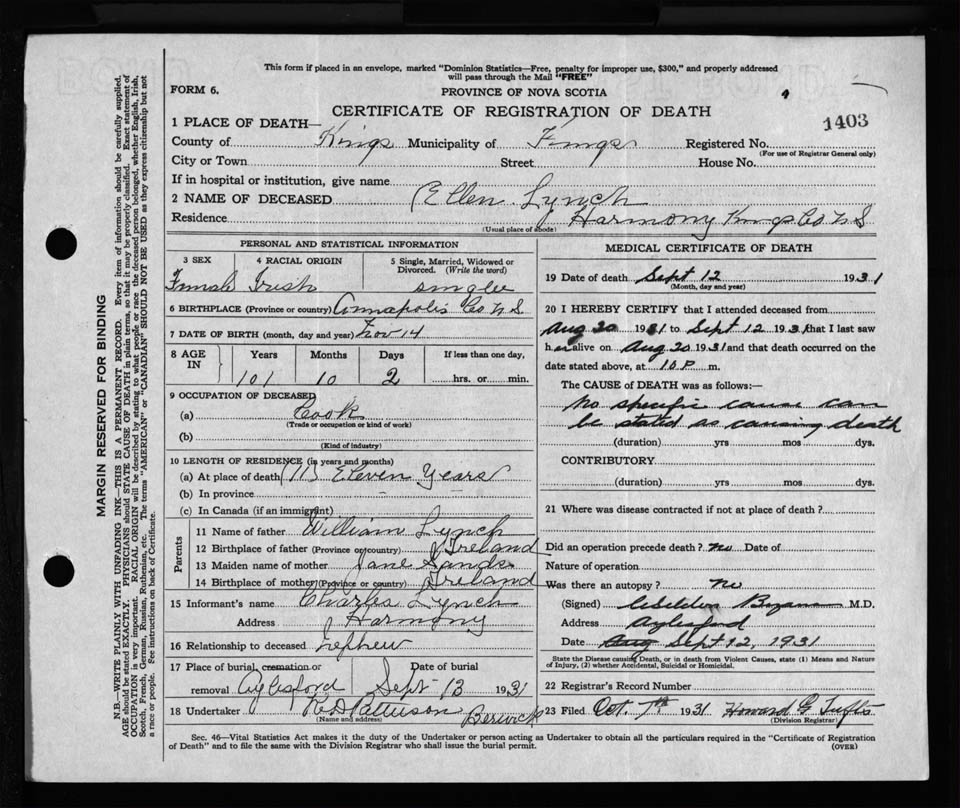 This form if placed in an envelope, marked "Dominion Statistics—Free, penalty for improper use, $300," and properly addressed
will pass through the Mail "FREE"
FORM 6.
PROVINCE OF NOVA SCOTIA
CERTIFICATE OF REGISTRATION OF DEATH
1403
1 PLACE OF DEATH—
County of Kings Municipality of Kings Registered No.
(For use of Registrar General only)
City or Town Street House No.
If in hospital or institution, give name
2 NAME OF DECEASED Ellen Lynch
Residence Harmony Kings Co N S
(Usual place of abode)
PERSONAL AND STATISTICAL INFORMATION
3 SEX 4 RACIAL ORIGIN 5 Single, Married, Widowed or
Divorced. (Write the word)
Irish
6 BIRTHPLACE (Province or country) Annapolis Co N S
7 DATE OF BIRTH (month, day and year) Nov 14
8 AGE
IN
Years Months Days If less than one day,
101 10 2 hrs. or min.
9 OCCUPATION OF DECEASED
(a) Cook
(Trade or occupation or kind of work)
(b)
(Kind of industry)
10 LENGTH OF RESIDENCE (in years and months)
(a) At place of death (11) Eleven Years
(b) In province
(c) In Canada (if an immigrant)
Parents
11 Name of father William Lynch
12 Birthplace of father (Province or country) Ireland
13 Maiden name of mother Jane Sands
14 Birthplace of mother (Province or country) Ireland
15 Informant's name Charles Lynch
Address Harmony
16 Relationship to deceased nephew
17 Place of burial, cremation or Date of burial
removal Aylesford Sept 13 1931
18 Undertaker Patterson Berwick
(Name and address)
MEDICAL CERTIFICATE OF DEATH
19 Date of death Sept 12 1931
(Month, day and year)
20 I HEREBY CERTIFY that I attended deceased from
Aug 20 1931 to Sept 12 1931 that I last saw
her alive on Aug 20 1931 and that death occurred on the
date stated above, at 10 P m.
The CAUSE of DEATH was as follows:—
No specific cause can
be stated as causing death
(duration) yrs mos dys.
CONTRIBUTORY
(duration) yrs mos dys.
21 Where was disease contracted if not at place of death?
Did an operation precede death? no Date of
Nature of operation
Was there an autopsy? no
(Signed) M.D.
Address Aylesford
Date Aug Sept 12, 1931
State the Disease causing Death, or in death from Violent Causes, state (1) Means and Nature
of Injury, (2) whether Accidental, Suicidal or Homicidal.
22 Registrar's Record Number
23 Filed Oct. 7th 1931 Howard G Tufts
(Division Registrar)
Sec. 46—Vital Statistics Act makes it the duty of the Undertaker or person acting as Undertaker to obtain all the particulars required in the "Certificate of Registration
of Death" and to file the same with the Division Registrar who shall issue the burial permit.
(OVER)
MARGIN RESERVED FOR BINDING
N.B.—WRITE PLAINLY WITH UNFADING INK—THIS IS A PERMANENT RECORD. Every item of information should be carefully supplied.
AGE should be stated EXACTLY. PHYSICIANS should STATE CAUSE OF DEATH in plain terms, so that it may be properly classified. Exact statement of
OCCUPATION is very important. RACIAL ORIGIN will be described by stating to what people or race the deceased person belonged, whether English, Irish,
Scotch, French, German, Russian, Ruthenian, etc. The terms "AMERICAN" or "CANADIAN" SHOULD NOT BE USED as they express citizenship but not
a race or people. See instructions on back of Certificate.